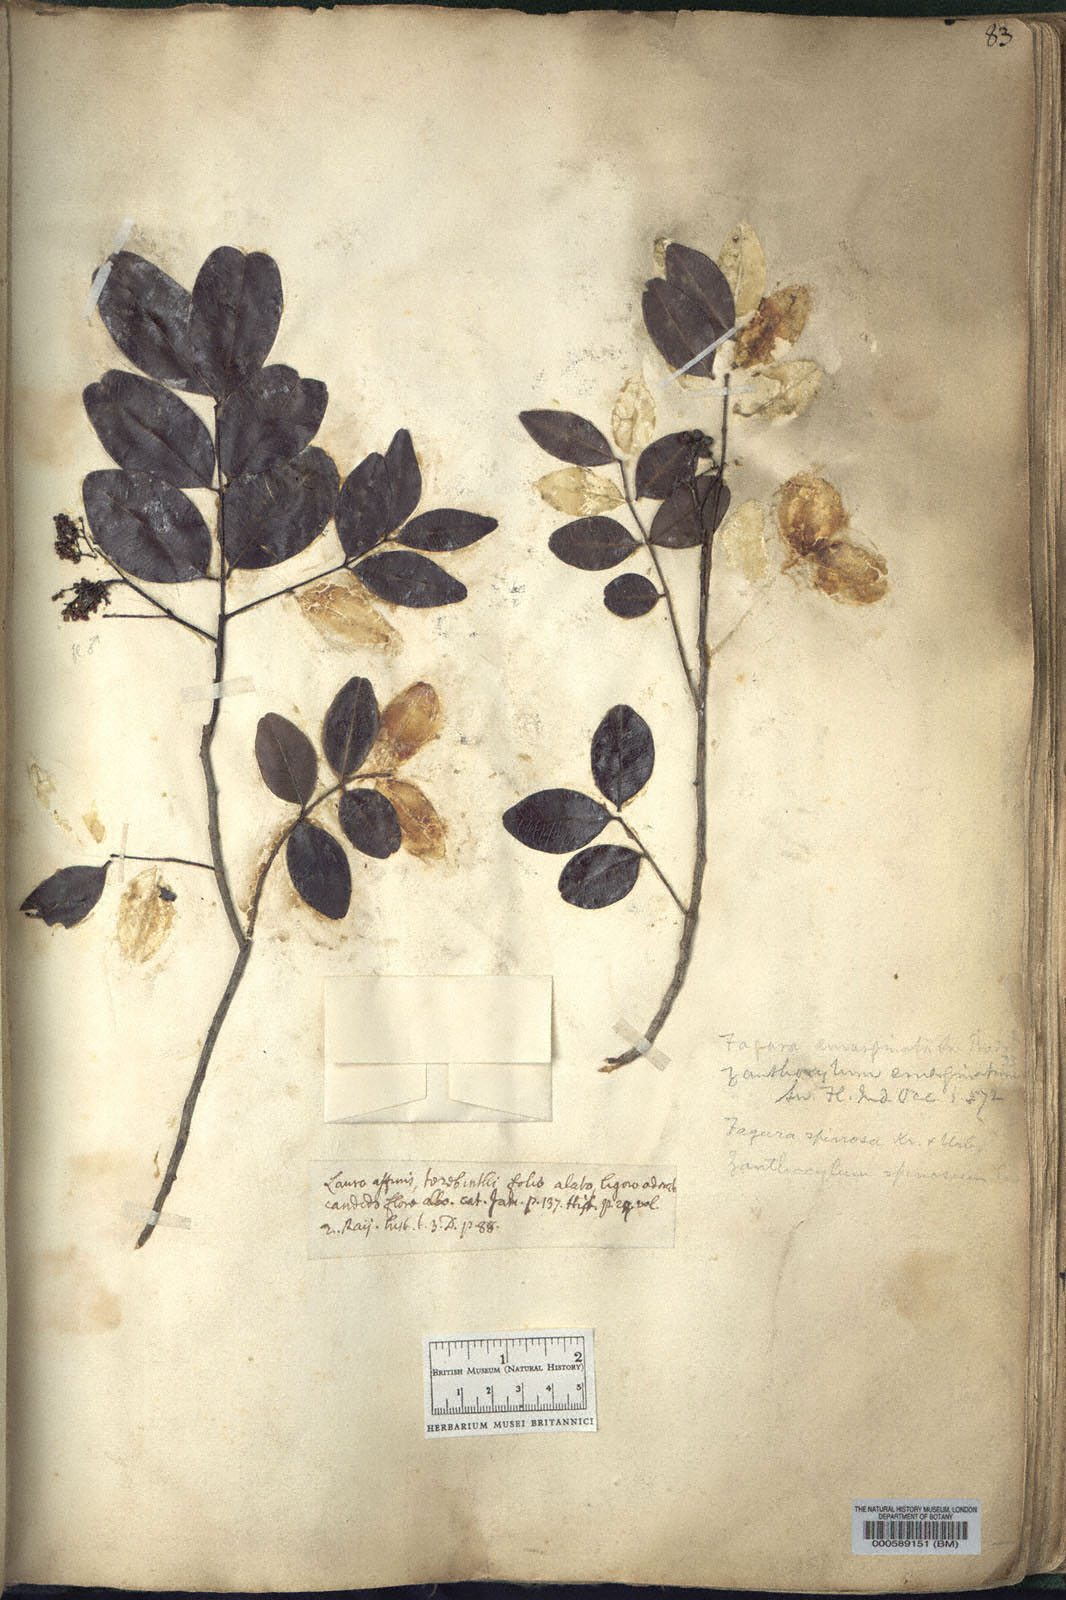 83
fl ♂
Fagara emarginata
Zanthoxylum emarginatum
Sw. Fl. Ind. Occ. 1. 572
Fagara spinosa Kr. & Urb.
Zanthoxylum spinosum
Lauro affinis, terebinthi folio alato, ligno odorato
candido flore albo. Cat. Jam. p. 137. Hist. p. vol.
2. Raij. hist. t. 3. D. p. 88.
1 2
BRITISH MUSEUM (NATURAL HISTORY)
1 2 3 4 5
HERBARIUM MUSEI BRITANNICI
THE NATURAL HISTORY MUSEUM, LONDON
DEPARTMENT OF BOTANY
000589151 (BM)